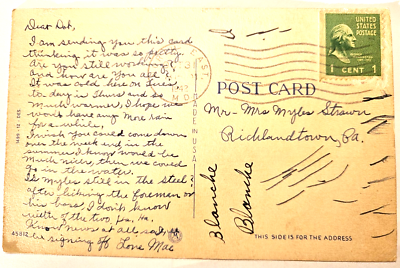 Dear Dot,
I am sending you this card
thinking it was so pretty.
Are you still working?
and how are you all?
It was cold here on Tues.
to day is Thurs and so
much warmer, I hope we
wont have any more rain
for a while,
I wish you could come down
over the week end in the
summer, I know would be
much nicer, then we could
go in the water.
Is Myles still in the steel?
after hiking the foreman or
his boss, I don't know
which of the two, Ha, Ha.
Know news at all so I'll
be signing off Love Mae
45812
MADE IN U.S.A.
UNITED STATES
POSTAGE
1 CENT 1
POST CARD
Mr- Mrs Myles Strawn
Richlandtown, Pa.
Blanche
Blanche
THIS SIDE IS FOR THE ADDRESS